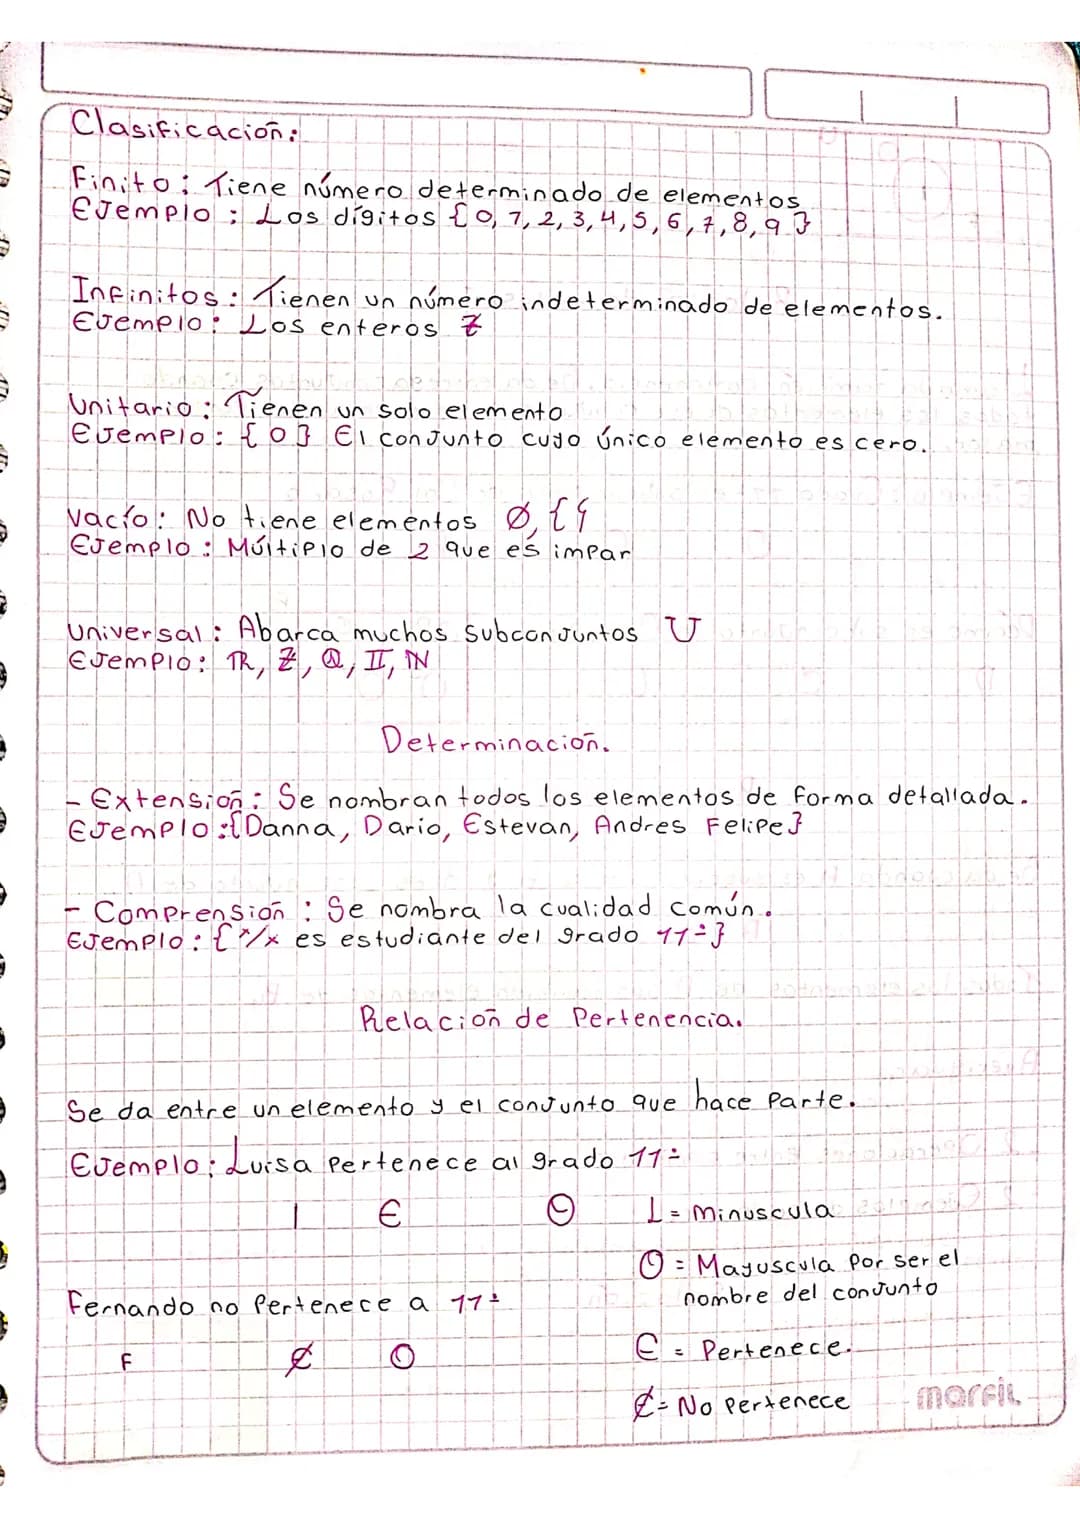 Clasificación:
Finito: Tiene número determinado de elementos
Ejemplo: Los dígitos {0, 1, 2, 3, 4, 5, 6, 7, 8, 9}
Infinitos: Tienen un número indeterminado de elementos.
Ejemplo: Los enteros ℤ
Unitario: Tienen un solo elemento
Ejemplo: {0} El conjunto cuyo único elemento es cero.
Vacío: No tiene elementos Ø, {}
Ejemplo: Múltiplo de 2 que es impar
Universal: Abarca muchos subconjuntos U
Ejemplo: ℝ, ℤ, ℚ, 𝕀, ℕ
Determinación.
- Extensión: Se nombran todos los elementos de forma detallada.
Ejemplo: {Danna, Dario, Estevan, Andres Felipe}
- Comprensión: Se nombra la cualidad común.
Ejemplo: {x/x es estudiante del grado 11°}
Relación de Pertenencia.
Se da entre un elemento y el conjunto que hace parte.
Ejemplo: Luisa pertenece al grado 11°
l ∈ O L = Minuscula
O = Mayuscula por ser el
nombre del conjunto
Fernando no pertenece a 11°
∈ = Pertenece.
F ∉ O
∉ = No pertenece
marfil